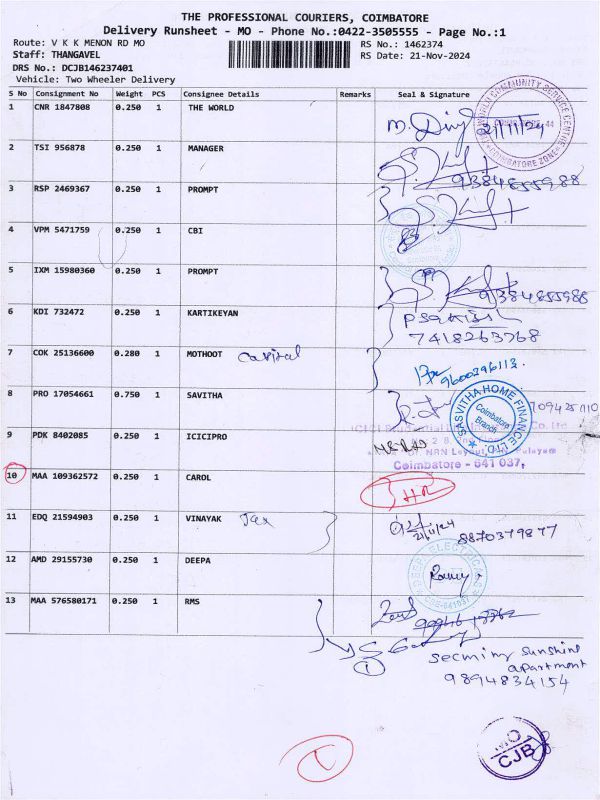 THE PROFESSIONAL COURIERS, COIMBATORE
Delivery Runsheet - MO - Phone No.:0422-3505555 - Page No.:1
Route: V K K MENON RD MO
RS No.: 1462374
Staff: THANGAVEL
RS Date: 21-Nov-2024
DRS No.: DCJB146237401
Vehicle: Two Wheeler Delivery
S No Consignment No Weight PCS Consignee Details Remarks Seal & Signature
1 CNR 1847808 0.250 1 THE WORLD
21/11/24
WORLD COMMUNITY SERVICE CENTRE
COIMBATORE ZONE
2 TSI 956878 0.250 1 MANAGER
9384855988
3 RSP 2469367 0.250 1 PROMPT
4 VPM 5471759 0.250 1 CBI
5 IXM 15980360 0.250 1 PROMPT
9384855988
6 KDI 732472 0.250 1 KARTIKEYAN
7418263768
7 COK 25136600 0.280 1 MOTHOOT Capital
9600396113
8 PRO 17054661 0.750 1 SAVITHA
SASVITHA HOME FINANCE LTD
Coimbatore
Branch
9 PDK 8402085 0.250 1 ICICIPRO
Coimbatore - 641 037,
10 MAA 109362572 0.250 1 CAROL
11 EDQ 21594903 0.250 1 VINAYAK
21/11/24
8870379877
12 AMD 29155730 0.250 1 DEEPA
13 MAA 576580171 0.250 1 RMS
1
sunshine
apartment
9894834154
MO
CJB